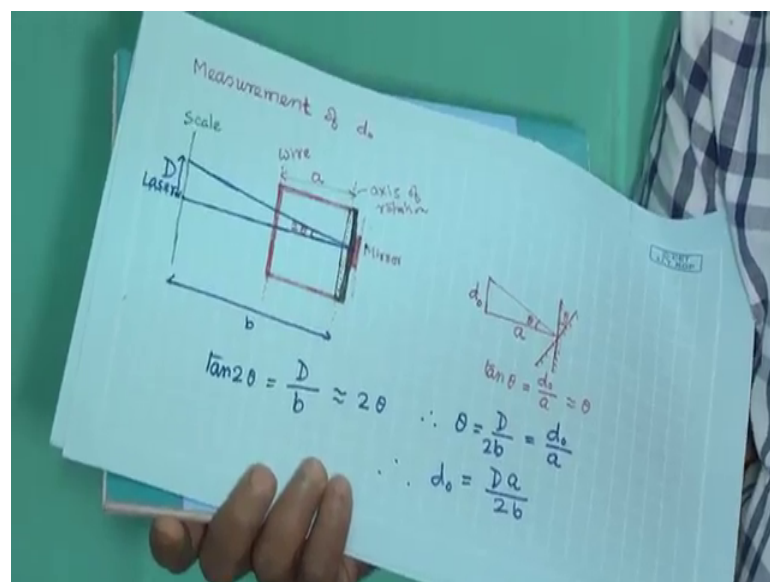 Measurement of d₀
Scale
wire
a
axis of
rotation
D
Laser
2θ
Mirror
b
d₀
θ
a
θ
tanθ = d₀/a ≈ θ
tan2θ = D/b ≈ 2θ
∴ θ = D/2b = d₀/a
∴ d₀ = Da/2b